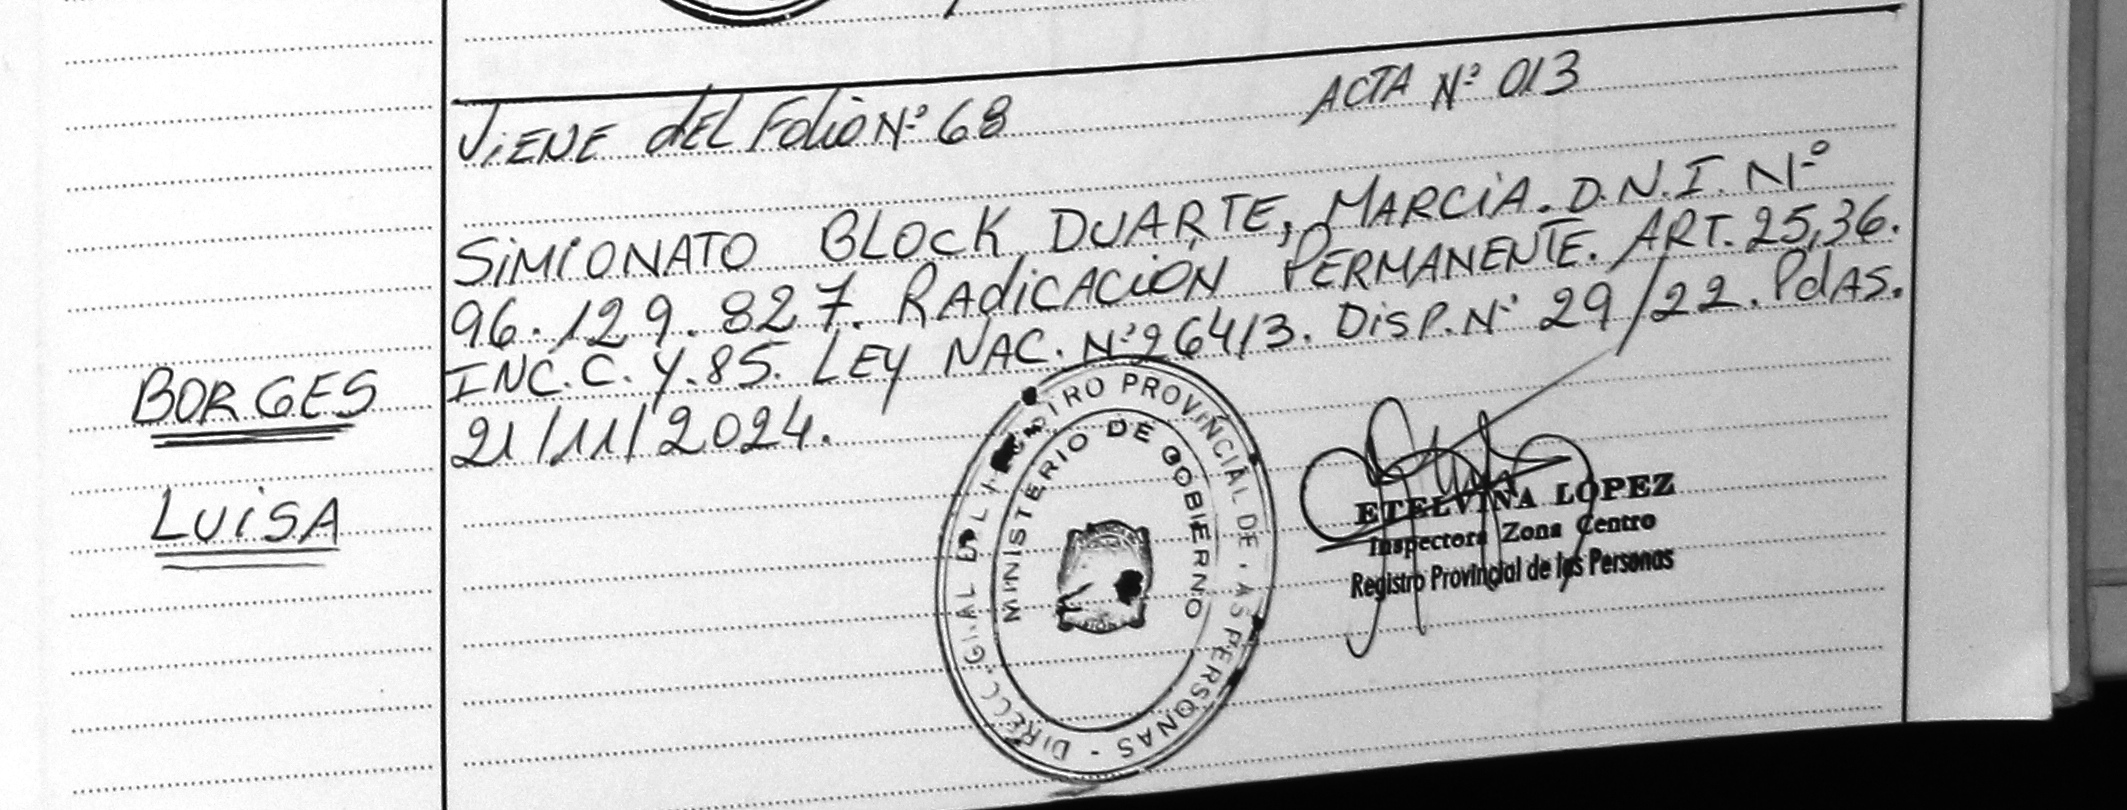 ViENE dEL Folio Nº 68
ACTA Nº 013
SiMIONATO BLOCK DUARTE, MARCiA. D.N.I. Nº
96.129.827. RAdiCACiÓN PERMANENTE. ART. 25,36.
INC.C.Y.85. LEY NAC. Nº 26413. DiSP. Nº 29/22. PdAS.
21/11/2024.
BORGES
LUiSA
REGISTRO PROVINCIAL DE LAS PERSONAS - DIRECC. GRAL DEL
MINISTERIO DE GOBIERNO
ETELVINA LOPEZ
Inspectora Zona Centro
Registro Provincial de las Personas